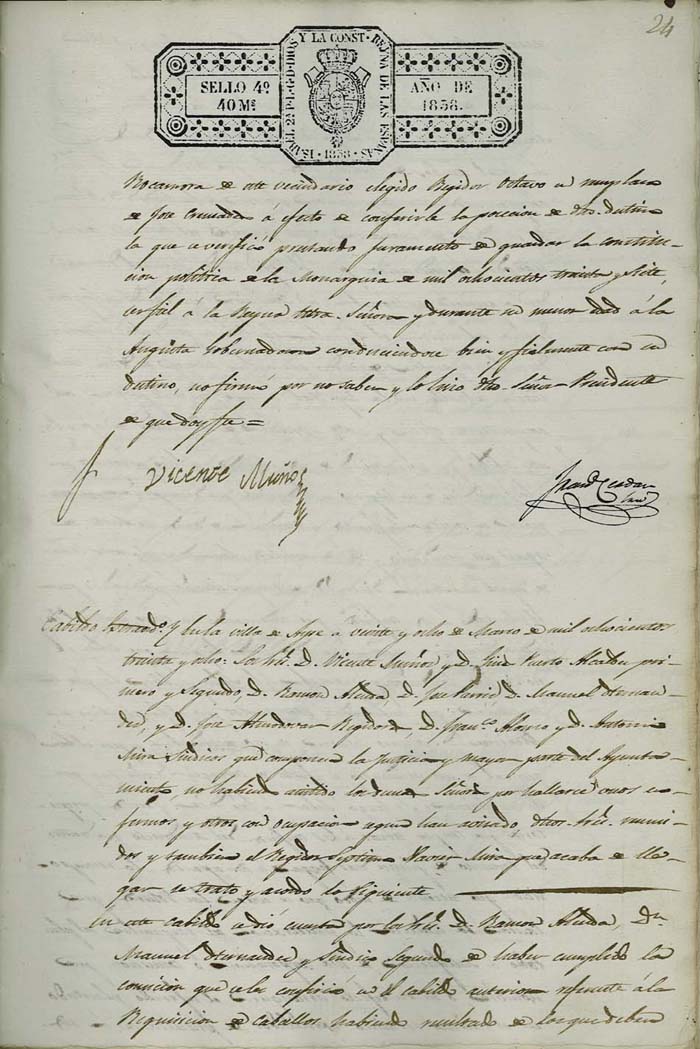 24
ISABEL 2ª P. L. G. D. DIOS Y LA CONST. REYNA DE LAS ESPAÑAS
1838
SELLO 4º
40 Ms
AÑO DE
1838.
Rocamora de este vecindario elegido Regidor Octavo en
de José á efecto de conferirle la poseción de dho. destino
la que se verificó prestando juramento de guardar la constitu-
cion politica de la Monarquia de mil ochocientos treinta y siete,
ser fiel á la Reyna ntra. Señora y durante su menor edad á la
Augusta Gobernadora conduciendose bien y fielmente con su
destino, no firmó por no saber y lo hizo dho. Señor Presidente
de que doy fe =
Vicente Muñoz
Cabildo En la villa de Aspe a veinte y ocho de Marzo de mil ochocientos
treinta y ocho: Los Srs. D. Vicente Muñoz y D. José Puerto Alcaldes pri-
mero y Segundo, D. Ramon D. José D. Manuel Hernan-
dez, y D. José Almodovar Regidores, D. Franco. Alonso y D. Antonio
Mira Sindicos que componen la Justicia y mayor parte del Ayunta-
miento, no habiendo asistido los demas Señores por hallarse unos en-
fermos y otros con ocupacion aque han avisado, dhos. Srs. reuni-
dos y tambien el Regidor Septimo Xavier Mira que acaba de lle-
gar se trató y acordó lo siguiente
En este cabildo se dió cuenta por los Srs. D. Ramon Dn.
Manuel Hernandez y Sindico Segundo de haber cumplido la
comicion que se les confirio en el cabildo anterior referente á la
Requisicion de caballos habiendo resultado de los que deben